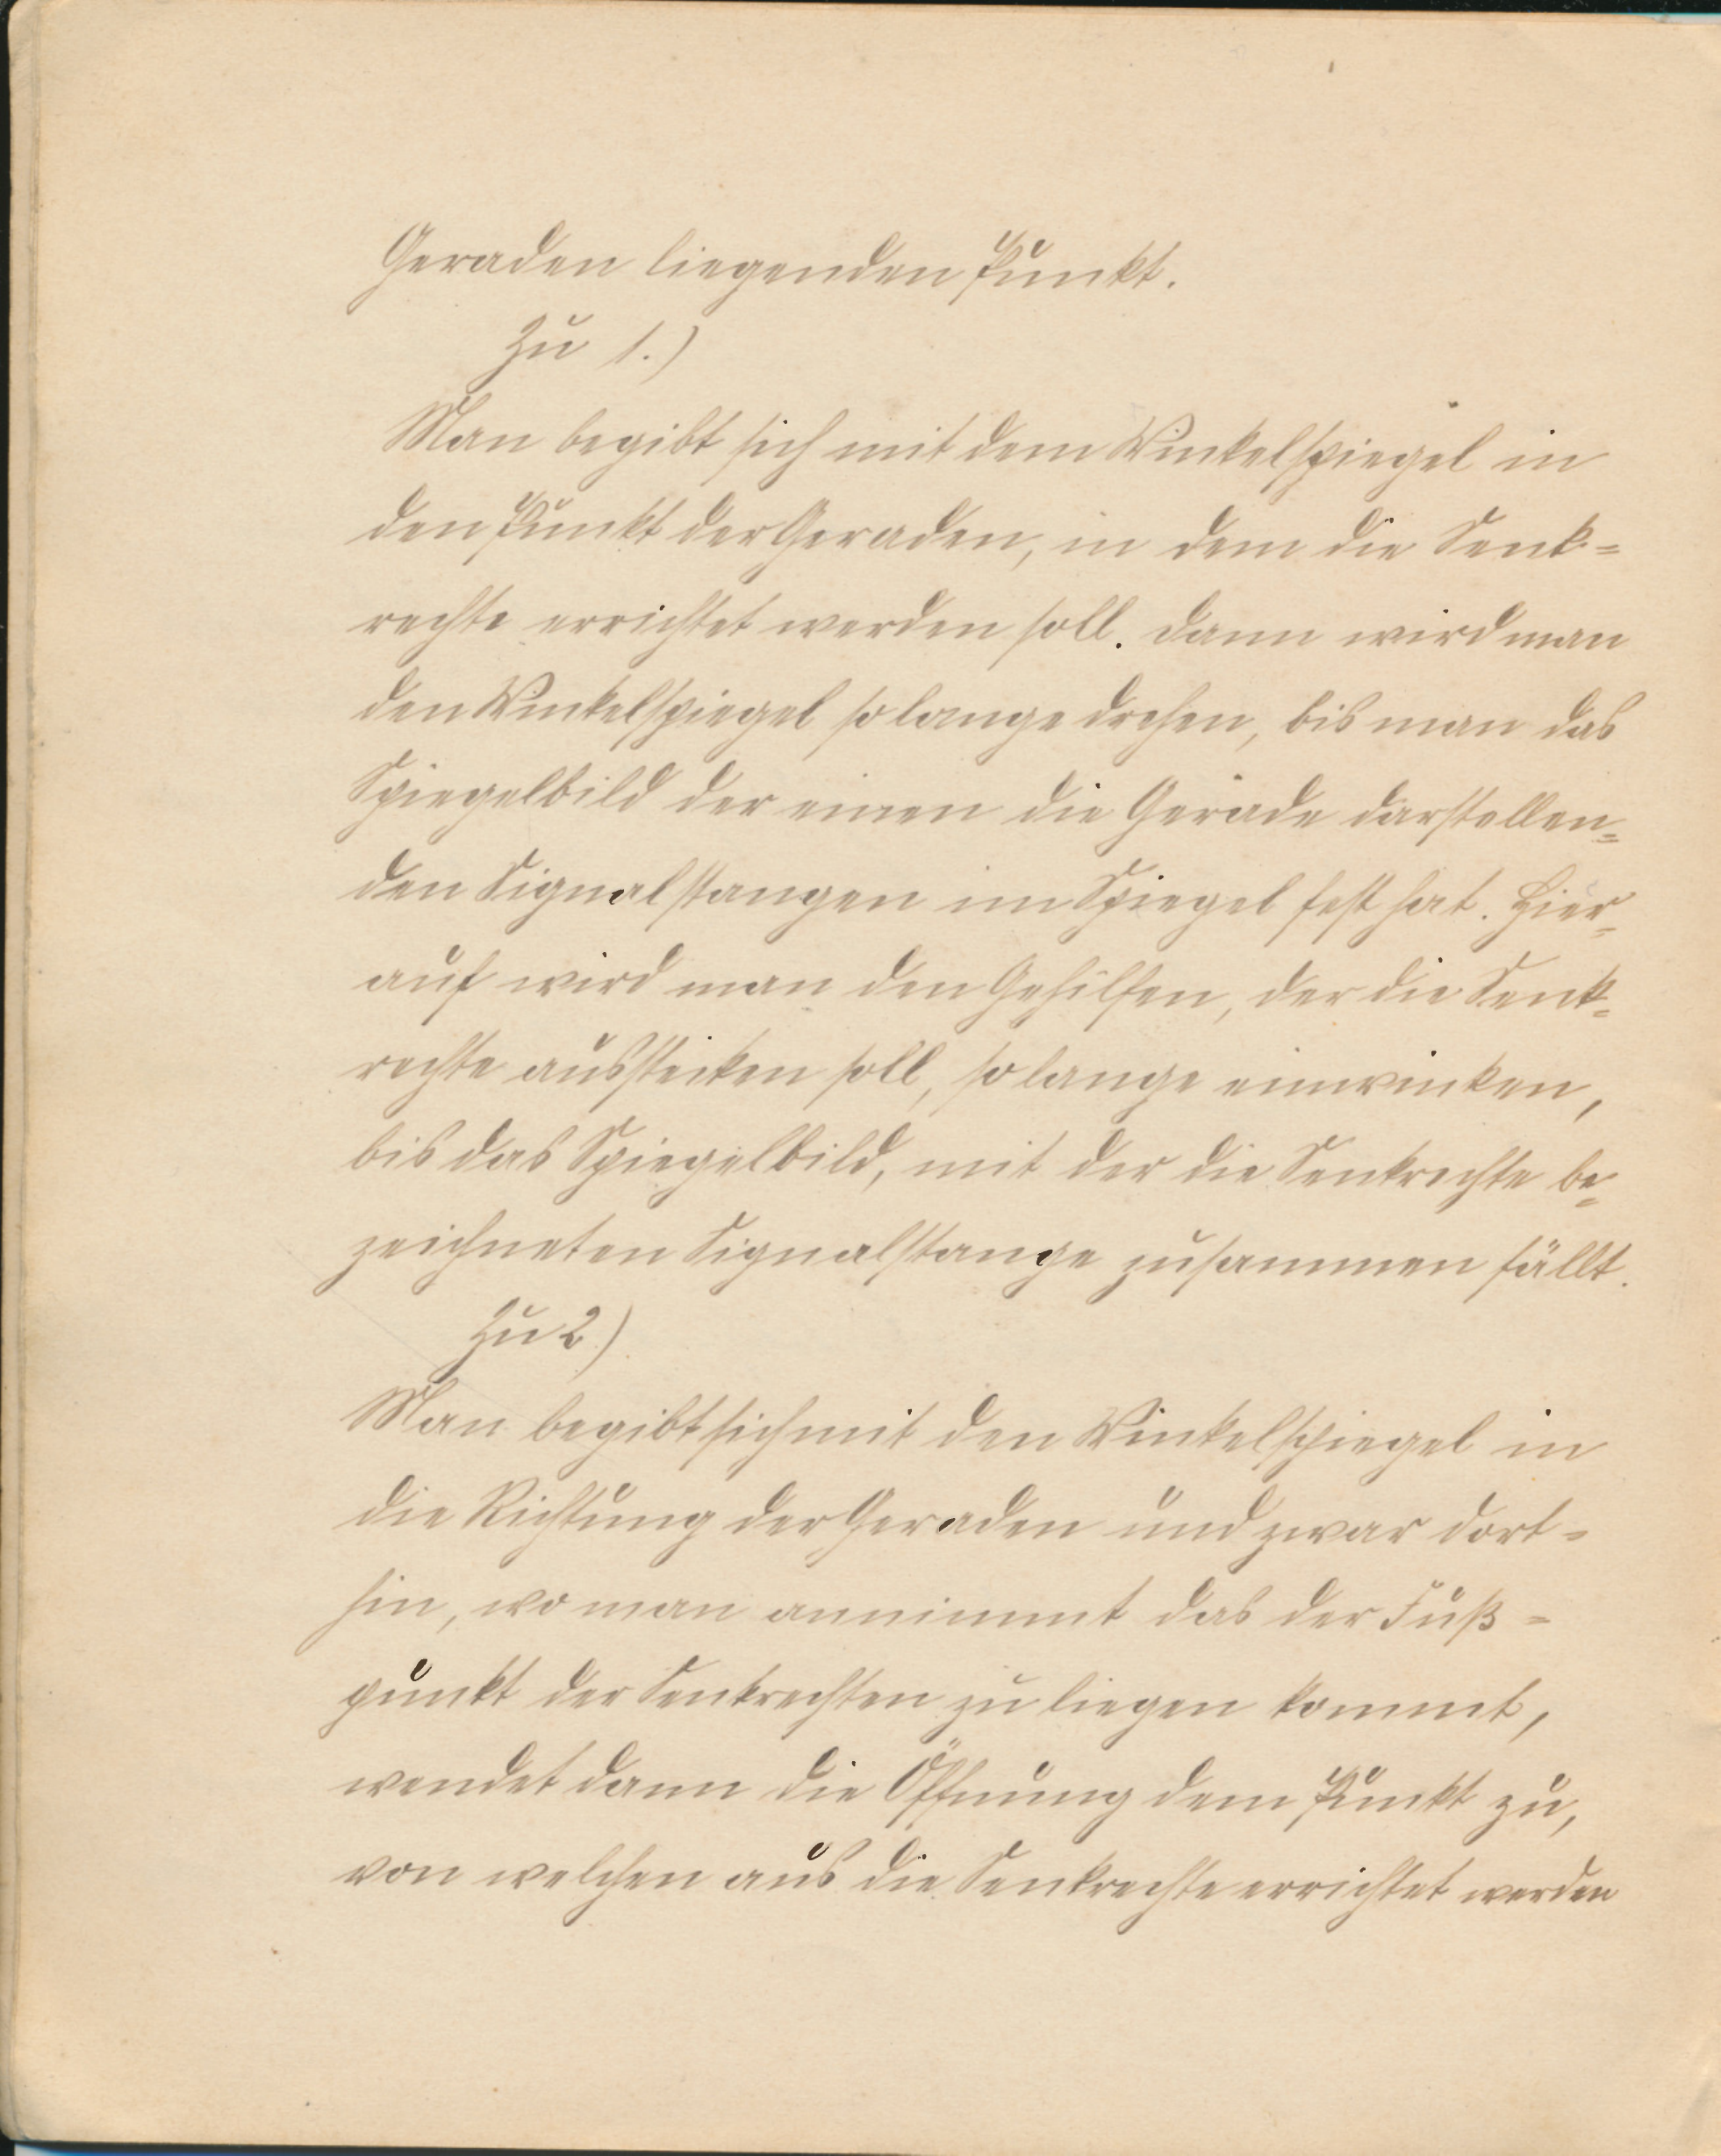 Geraden liegenden Punkt.
Zu 1.)
Man begibt sich mit dem Winkelspiegel in
den Punkt der Geraden, in dem die Senk=
rechte errichtet werden soll. Dann wird man
den Winkelspiegel so lange drehen, bis man das
Spiegelbild der einen die Gerade darstellen=
den Signalstangen im Spiegel fest hat. Hier=
auf wird man den Gehilfen, der die Senk=
rechte ausstecken soll, so lange einwinken,
bis das Spiegelbild, mit der die Senkrechte be=
zeichneten Signalstange zusammen fällt.
Zu 2)
Man begibt sich mit den Winkelspiegel in
die Richtung der Geraden und zwar dort=
hin, wo man annimmt das der Fuß=
punkt der Senkrechten zu liegen kommt,
wendet dann die Öffnung dem Punkt zu,
von welchen aus die Senkrechte errichtet werden